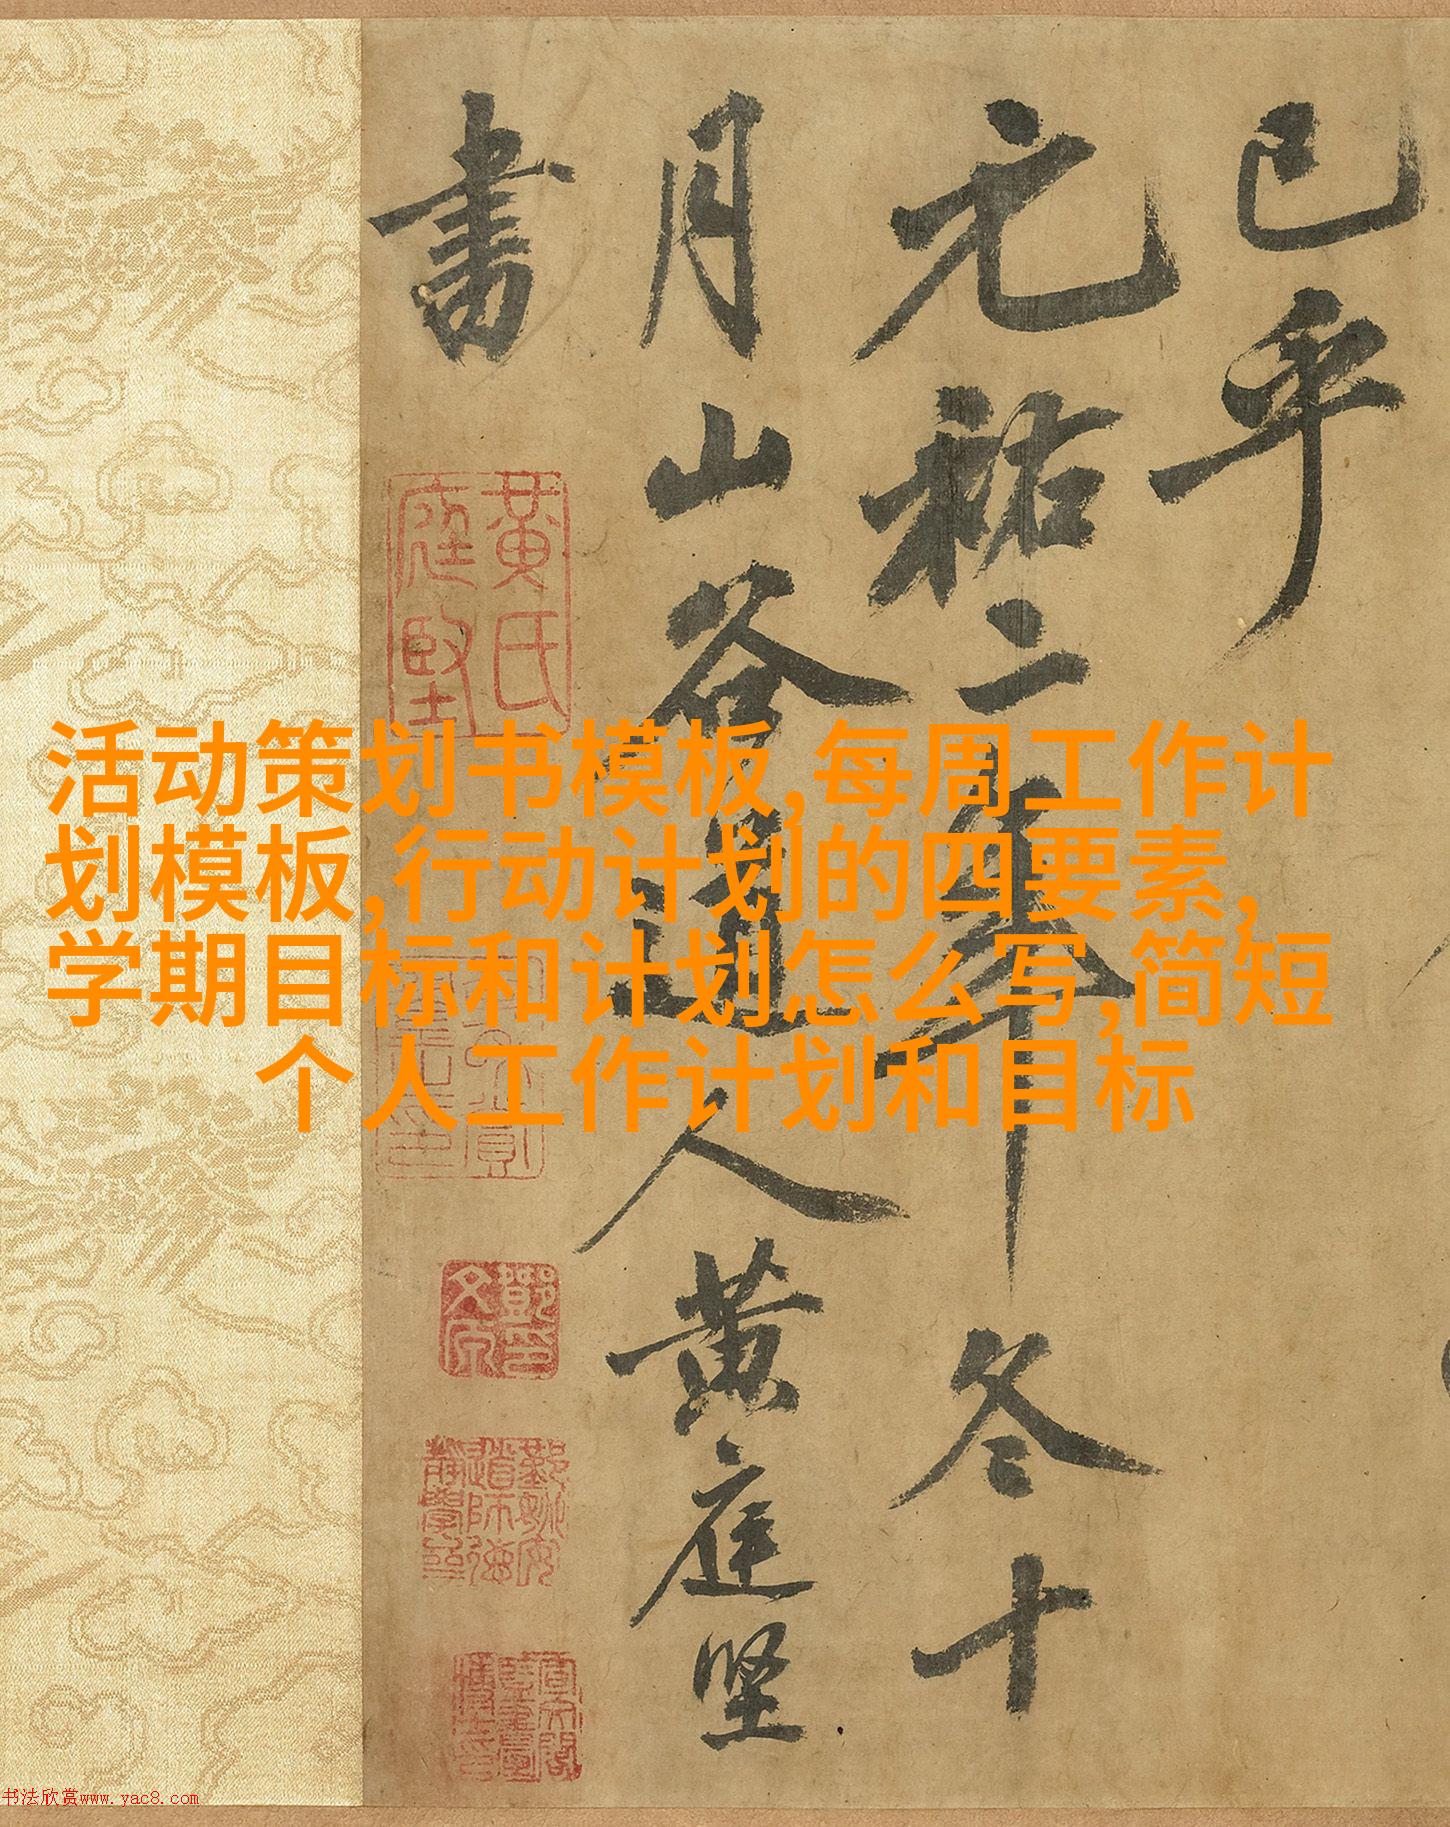 已乎
元祐二年冬十
月山谷道人黄庭坚
書
黄氏
庭堅
活动策划书模板,每周工作计
划模板,行动计划的四要素,
学期目标和计划怎么写,简短
个人工作计划和目标
书法欣赏www.yac8.com